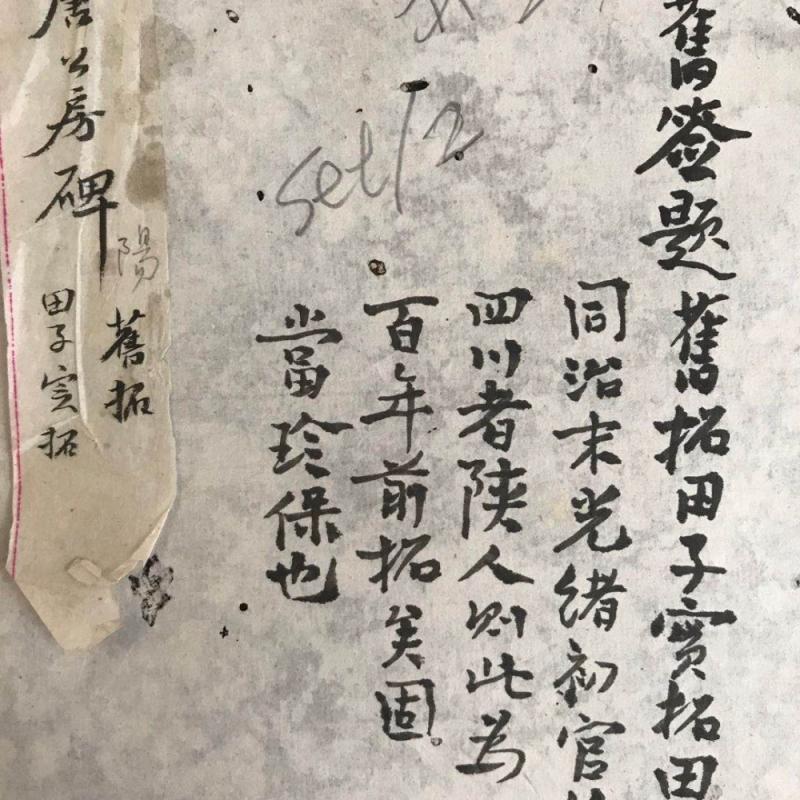 舊签題舊拓田子實拓田
同治末光緒初官
四川者陝人则此為
百年前拓矣固
當珍保也
set/2
唐公房碑
陽
舊拓
田子實拓